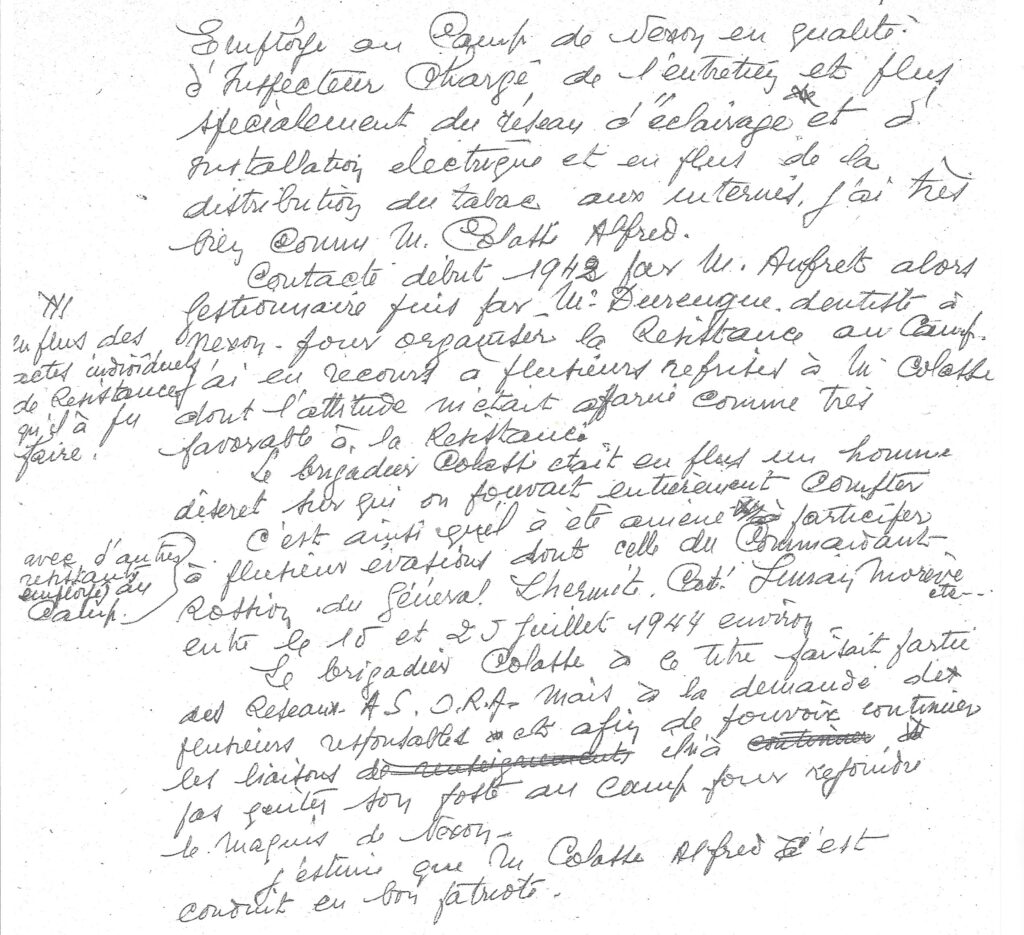 Employé au Camp de Nexon en qualité
d'Inspecteur Chargé de l'entretien et plus
spécialement du réseau d'éclairage et d'
installation électrique et en plus de la
distribution du tabac aux internés, j'ai très
bien connu M. Colasse Alfred.
Contacté début 1942 par M. Aufret alors
gestionnaire puis par Mr dentiste à
Nexon - pour organiser la Resistance au Camp.
J'ai eu recours à plusieurs reprises à M Colasse
dont l'attitude m'était apparue comme très
favorable à la Resistance
en plus des
actes individuels
de Resistance
qu'il à pu
faire.
Le brigadier Colasse était en plus un homme
discret sur qui on pouvait entièrement compter
C'est ainsi qu'il à été amené à participer
avec d'autres
resistants
employés au
Camp.
à plusieur évasions dont celle du Commandant
Rossion, du Général Lhermite, Morève
etc...
entre le 15 et 25 Juillet 1944 environ
Le brigadier Colasse à ce titre faisait partie
des Reseaux A.S. O.R.A. mais à la demande de
plusieurs responsables et afin de pouvoir continuer
les liaisons de renseignements continuer
pas quitter son poste au camp pour rejoindre
le maquis de Nexon -
J'estime que M Colasse Alfred c'est
conduit en bon patriote.